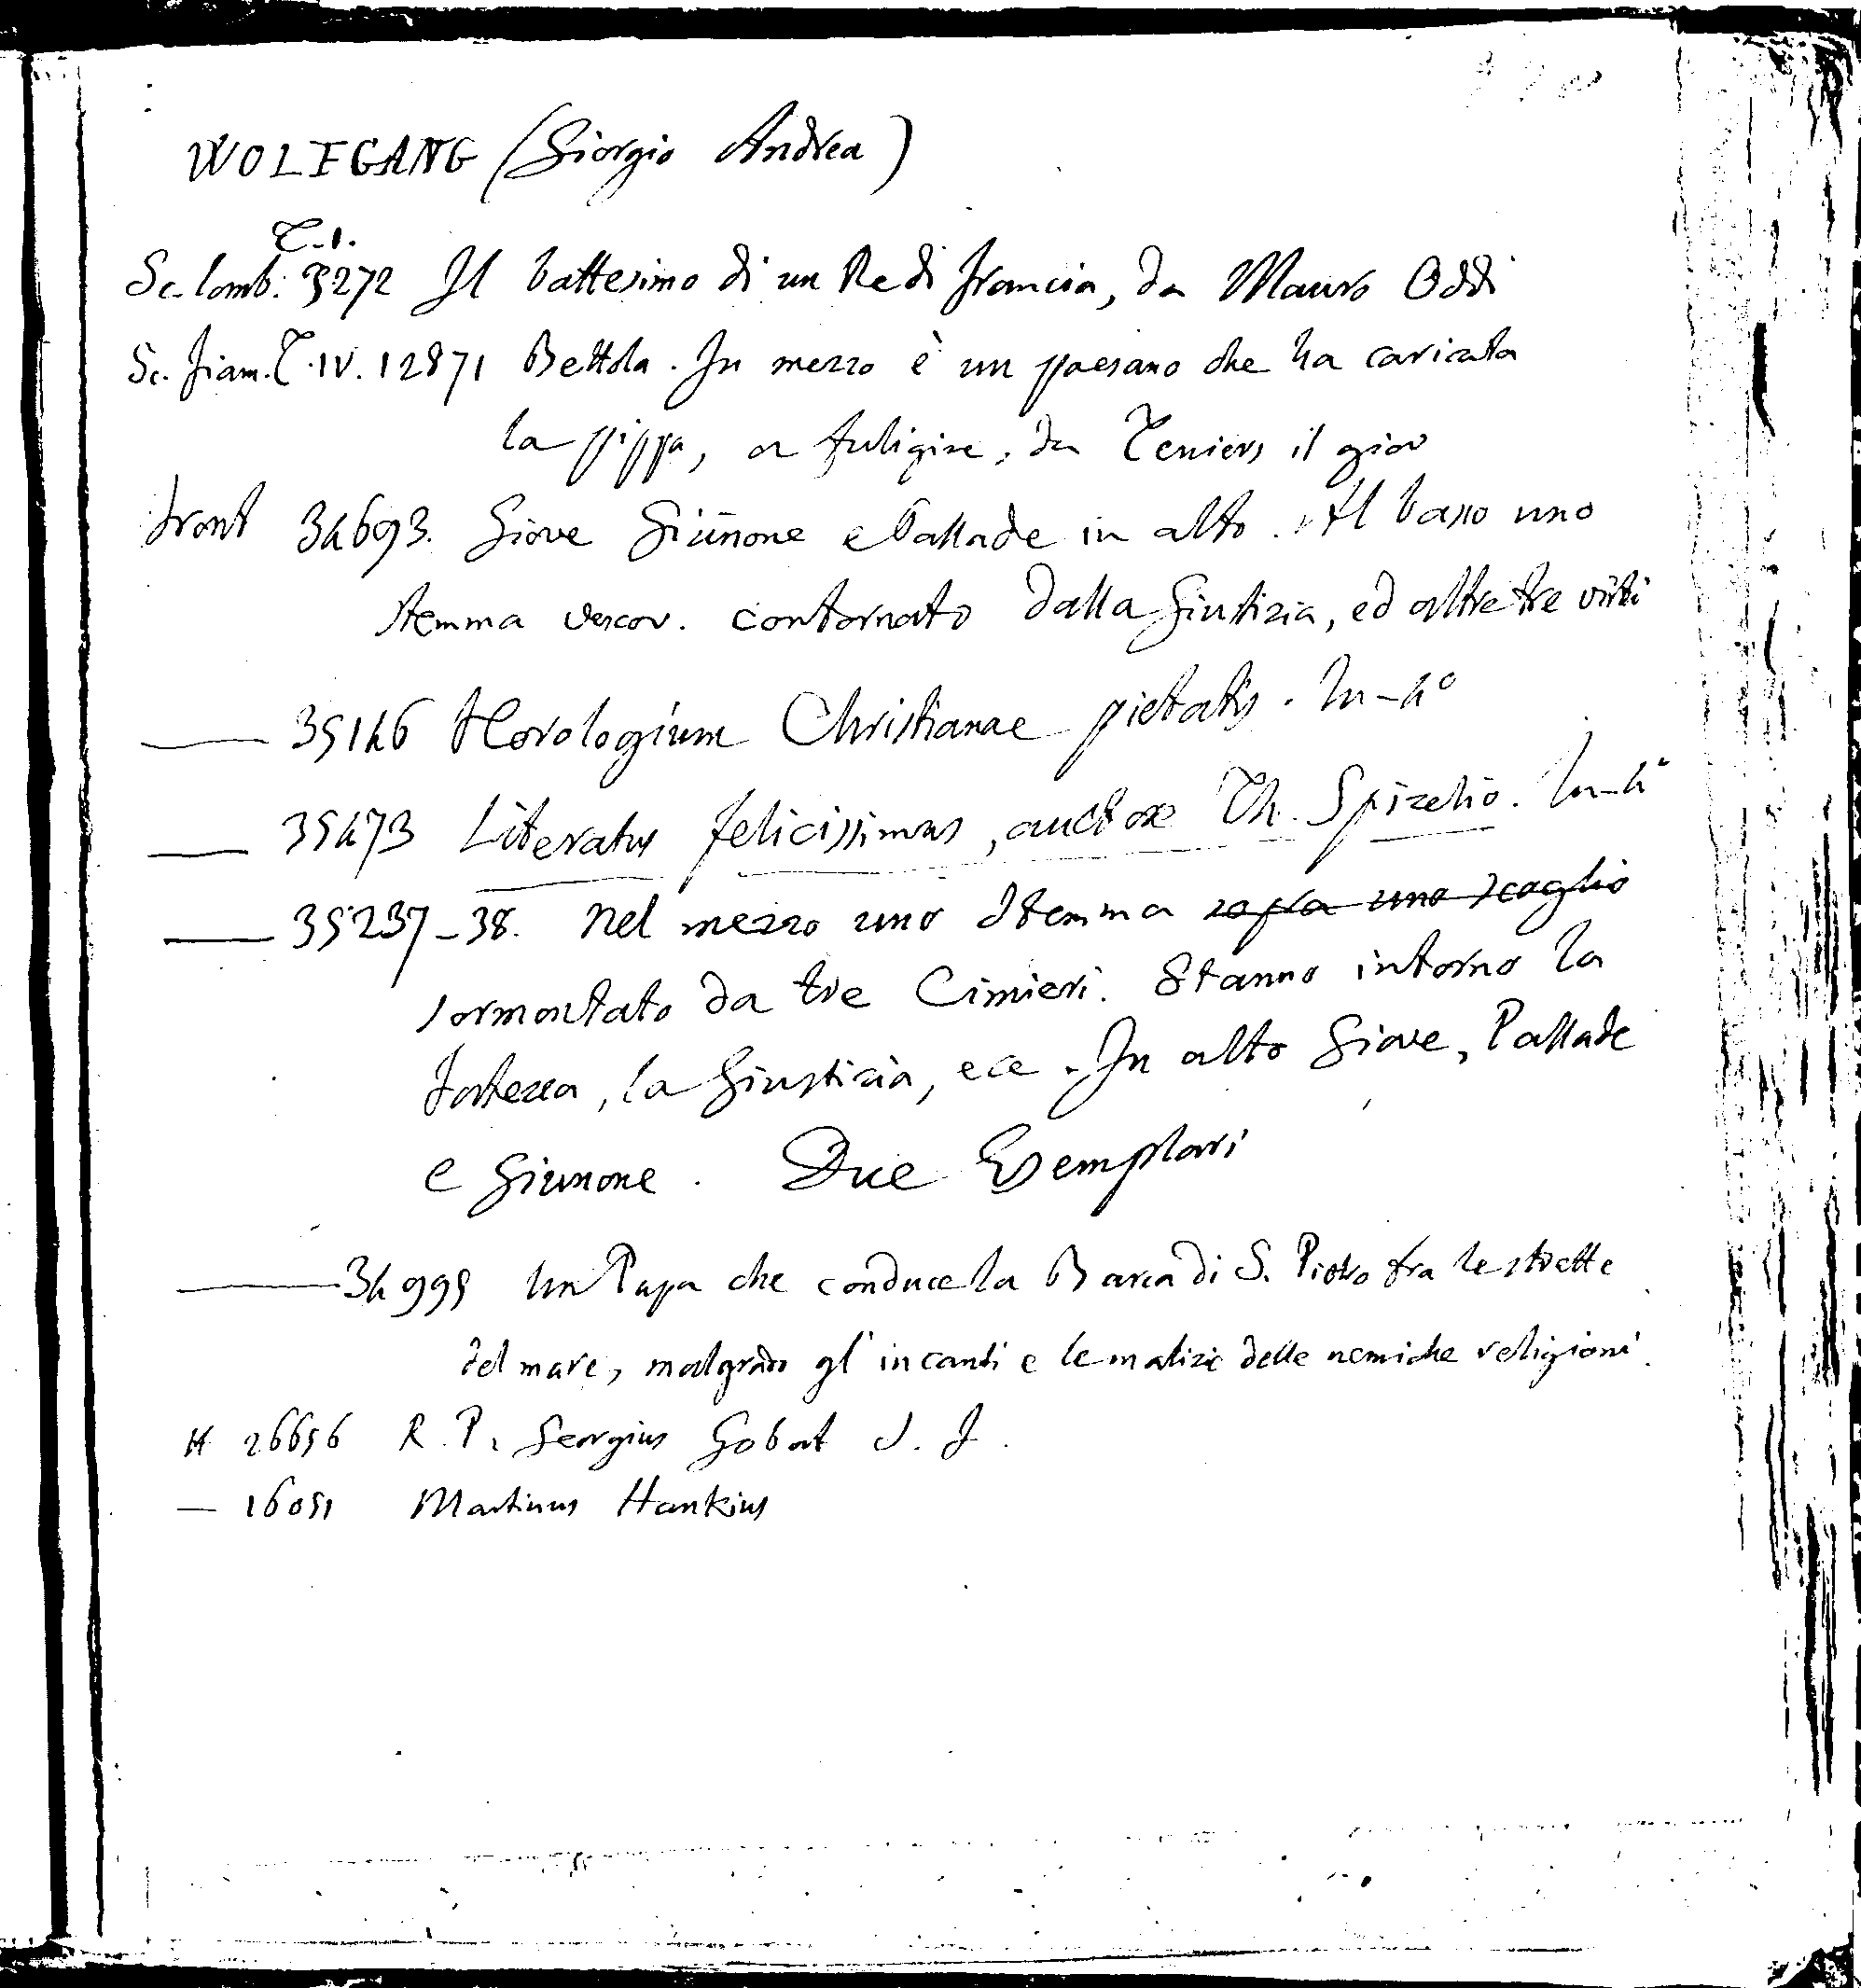 WOLFGANG (Giorgio Andrea)
T. I.
Sc. lomb. 3272 Il battesimo di un Re di Francia, da Mauro Oddi
Sc. fiam. T. IV. 12871 Bettola. In mezzo è un paesano che ha caricata
la pippa, a fuligine, da Teniers il giov
front 34693. Giove Giunone e Pallade in alto. Al basso uno
stemma vescov. contornato dalla Giustizia, ed altre tre virtù
— 35146 Horologium Christianae pietatis. In-4°
— 35473 Literatus felicissimus, auctore Th. Spizelio. In-4°
— 35237-38. Nel mezzo uno stemma sopra uno scoglio
sormontato da tre Cimieri. Stanno intorno la
Fortezza, la Giustizia, ecc. In alto Giove, Pallade
e Giunone. Due Esemplari
— 34995 Un Papa che conduce la Barca di S. Pietro fra le strette
del mare, malgrado gl'incanti e le malizie delle nemiche religioni.
26656 R. P. Georgius Gobat S. J.
— 16051 Martinus Hankius